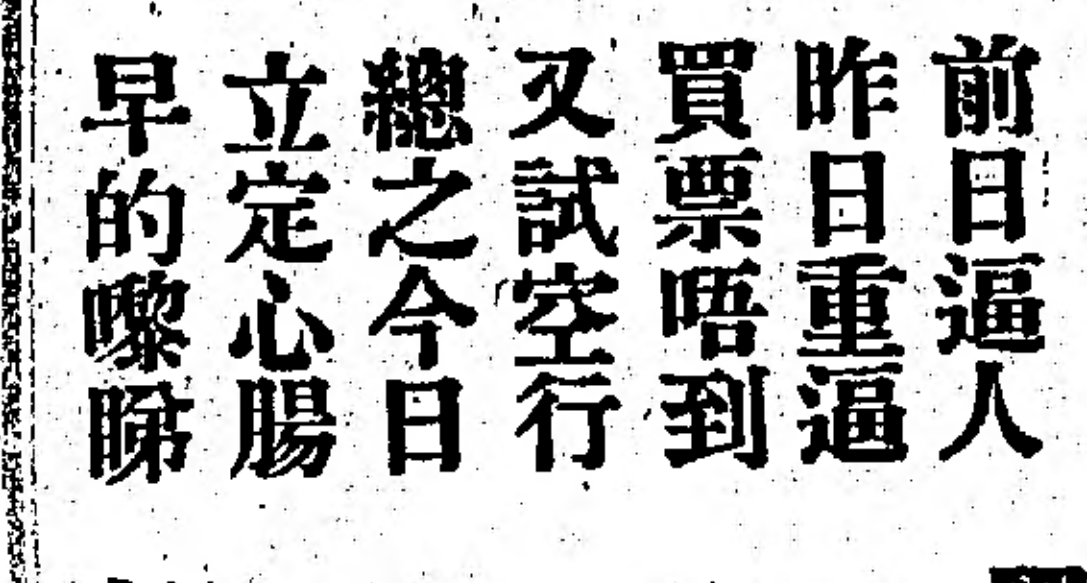 前日逼人
昨日重逼
買票唔到
又試空行
總之今日
立定心腸
早的嚟睇